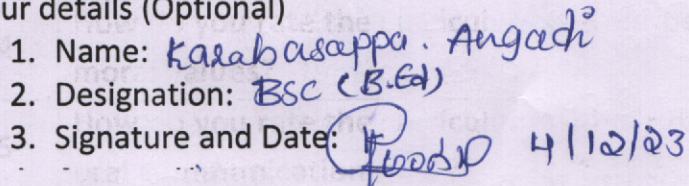 ur details (Optional)
1. Name: Karabasappa. Angadi
2. Designation: BSC (B.Ed)
3. Signature and Date: 4/12/23